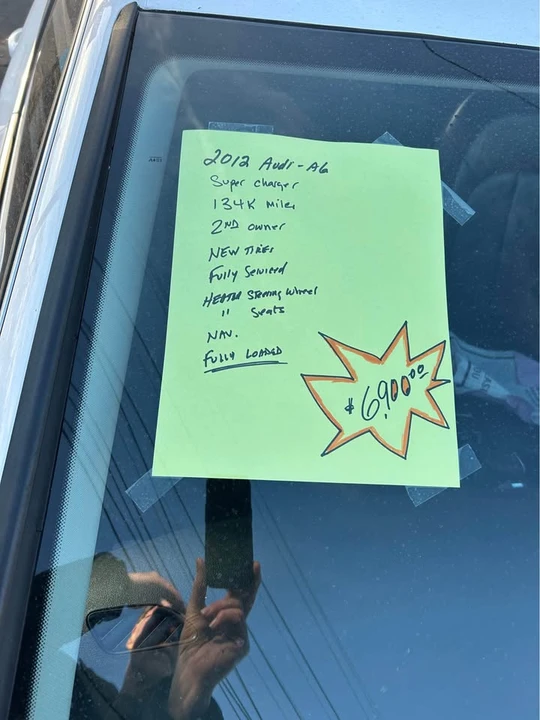 2012 Audi-A6
Super charger
134K miles
2ND owner
NEW TIRES
Fully Serviced
HEATED Steering Wheel
" Seats
NAV.
FULLY LOADED
$6,900.00